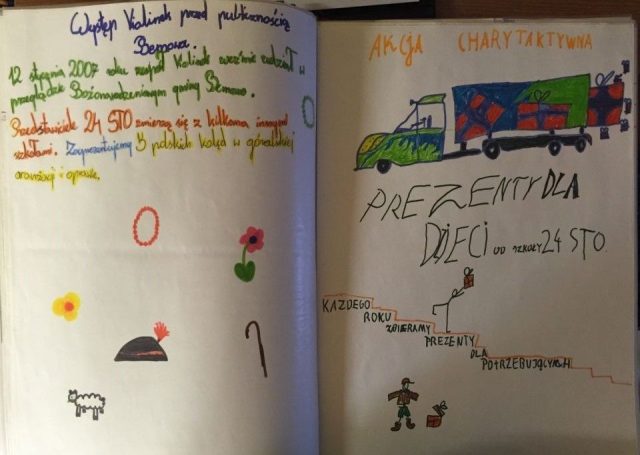 Występ Kalinek przed publicznością
Bemowa.
12 stycznia 2007 roku zespół Kalinek weźmie udział w
przeglądzie Bożonarodzeniowym gminy Bemowo.
Przedstawiciele 24 STO zmierzą się z kilkoma innymi
szkołami. Zaprezentujemy 3 polskich kolęd w góralskiej
aranżacji i oprawie.
AKCJA CHARYTAKTYWNA
PREZENTY DLA
DZIECI OD SZKOŁY 24 STO
KAŻDEGO
ROKU
ZBIERAMY
PREZENTY
DLA
POTRZEBUJĄCYCH